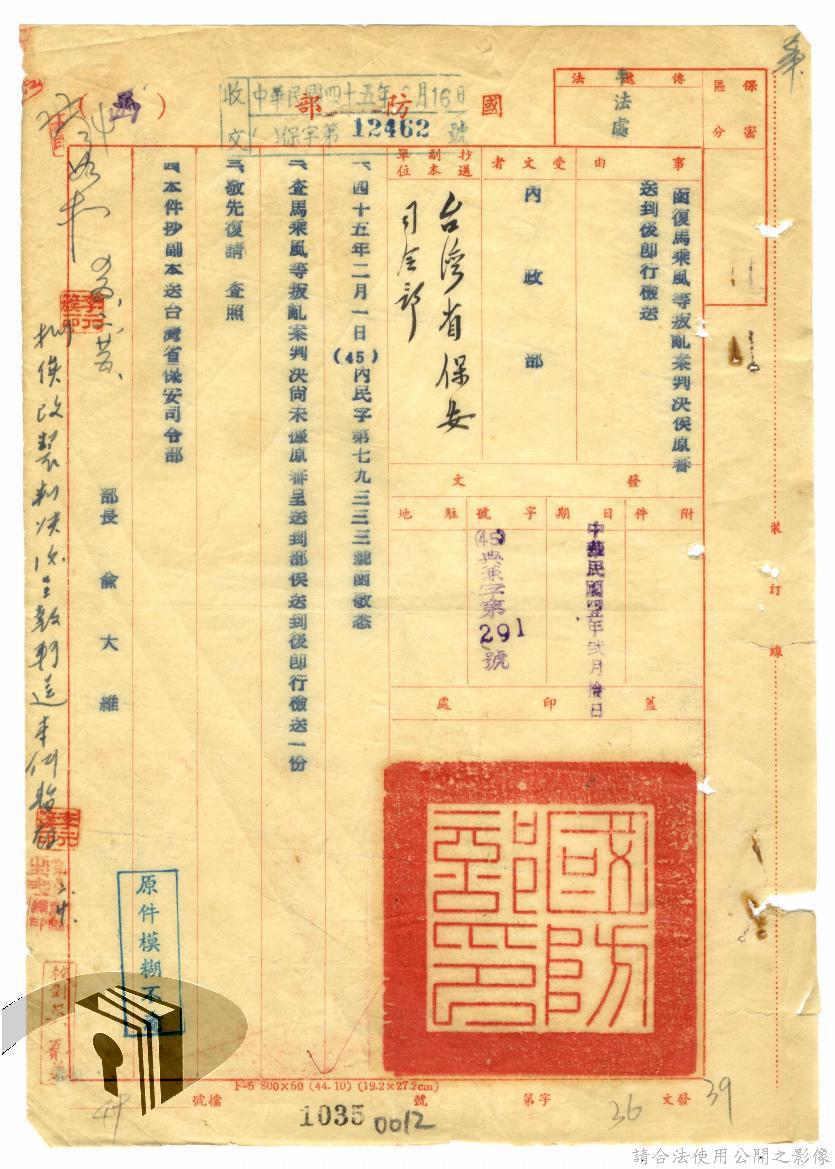 保密
區分
傳遞
法
軍法處
國防部
(函)
收文
中華民國四十五年2月16日
( )保字第12462號
事由
函復馬乘風等叛亂案判決俟原審
送到後即行檢送
受文者
內政部
抄送
副本
單位
台灣省保安
司令部
發文
附件
日期
中華民國四五年貳月拾日
字號
(45)典兼字第
291號
駐地
蓋印處
國防部印
一、四十五年二月一日(45)內民字第七九三三三號函敬悉
二、查馬乘風等叛亂案判決尚未據原審呈送到部俟送到後即行檢送一份
三、敬先復請 查照
四本件抄副本送台灣省保安司令部
部長 俞大維
原件模糊不清
裝訂線
F-5 800×50 (44.10) (19.2×27.2cm)
檔號
1035
0012
發文
字第
號
36
39
請合法使用公開之影像